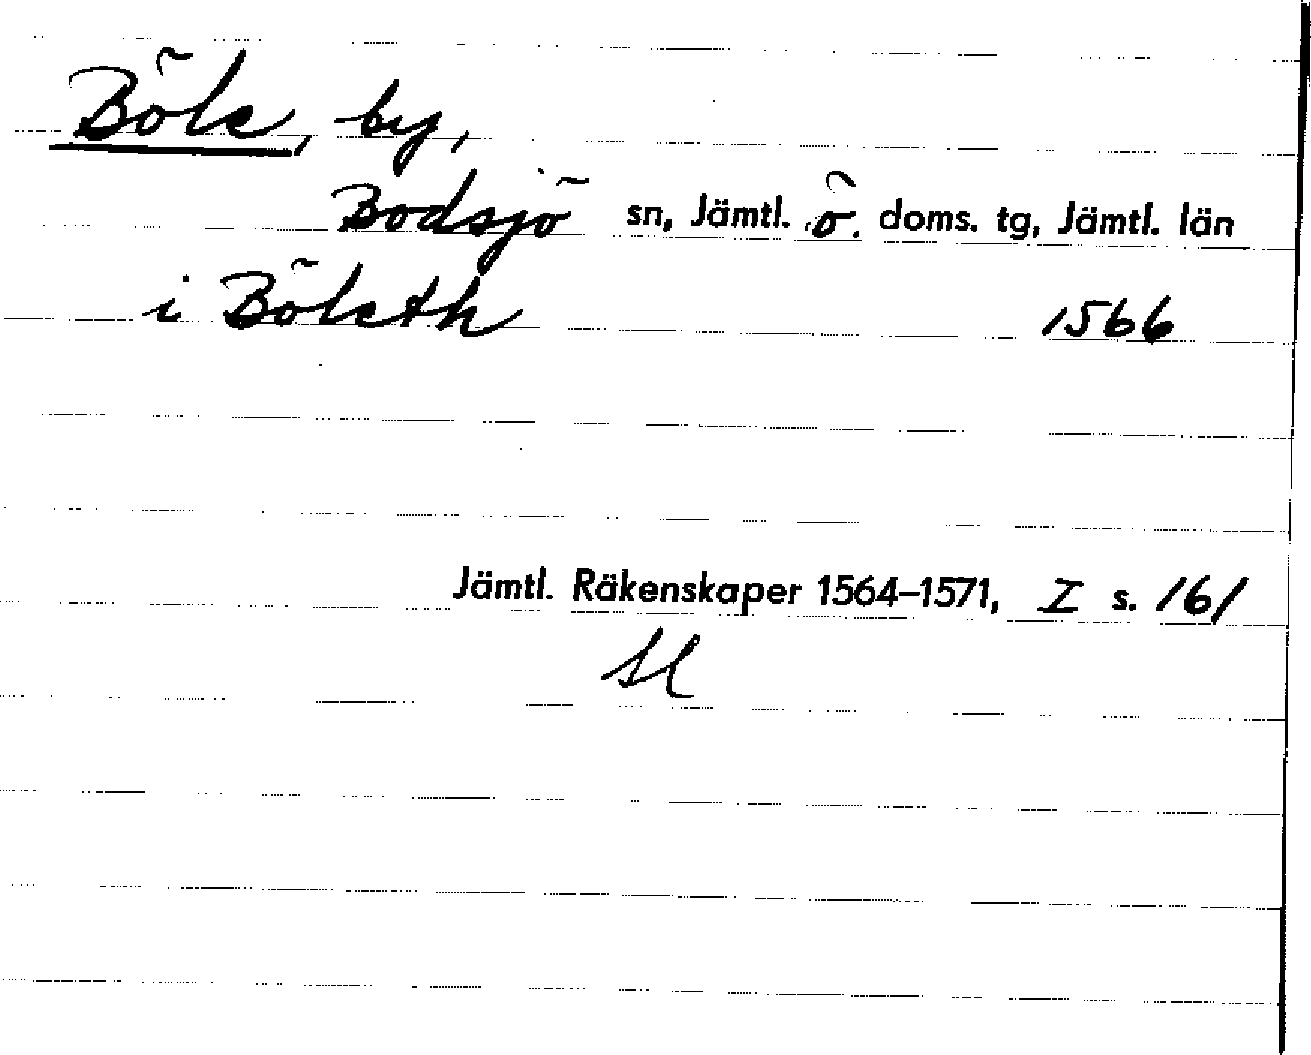 Böle, by,
Bodsjö sn, Jämtl. ö. doms. tg, Jämtl. län
i Böleth 1566
Jämtl. Räkenskaper 1564–1571, I s. 161